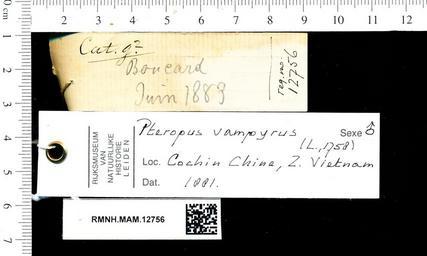 0 cm 1 2 3 4 5 6 7
2 3 4 5 6 7 8 9 10 11 12
Cat. g?
Boucard
Juin 1883
reg. no.
12756
RIJKSMUSEUM
VAN
NATUURLIJKE
HISTORIE
LEIDEN
Pteropus vampyrus Sexe ♂
(L., 1758)
Loc. Cochin China, Z. Vietnam
Dat. 1881.
RMNH.MAM.12756